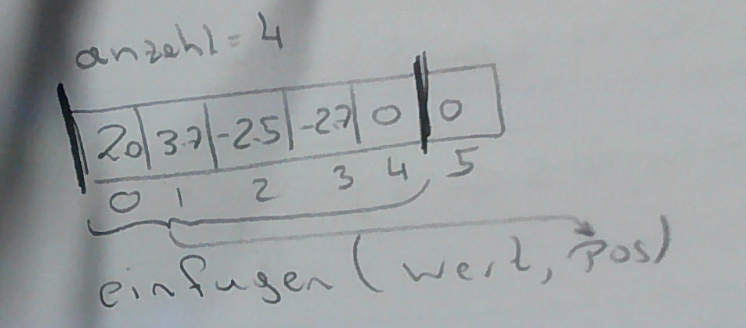 anzahl = 4
20 3.7 -2.5 -2.7 0 0
0 1 2 3 4 5
einfugen (wert, pos)